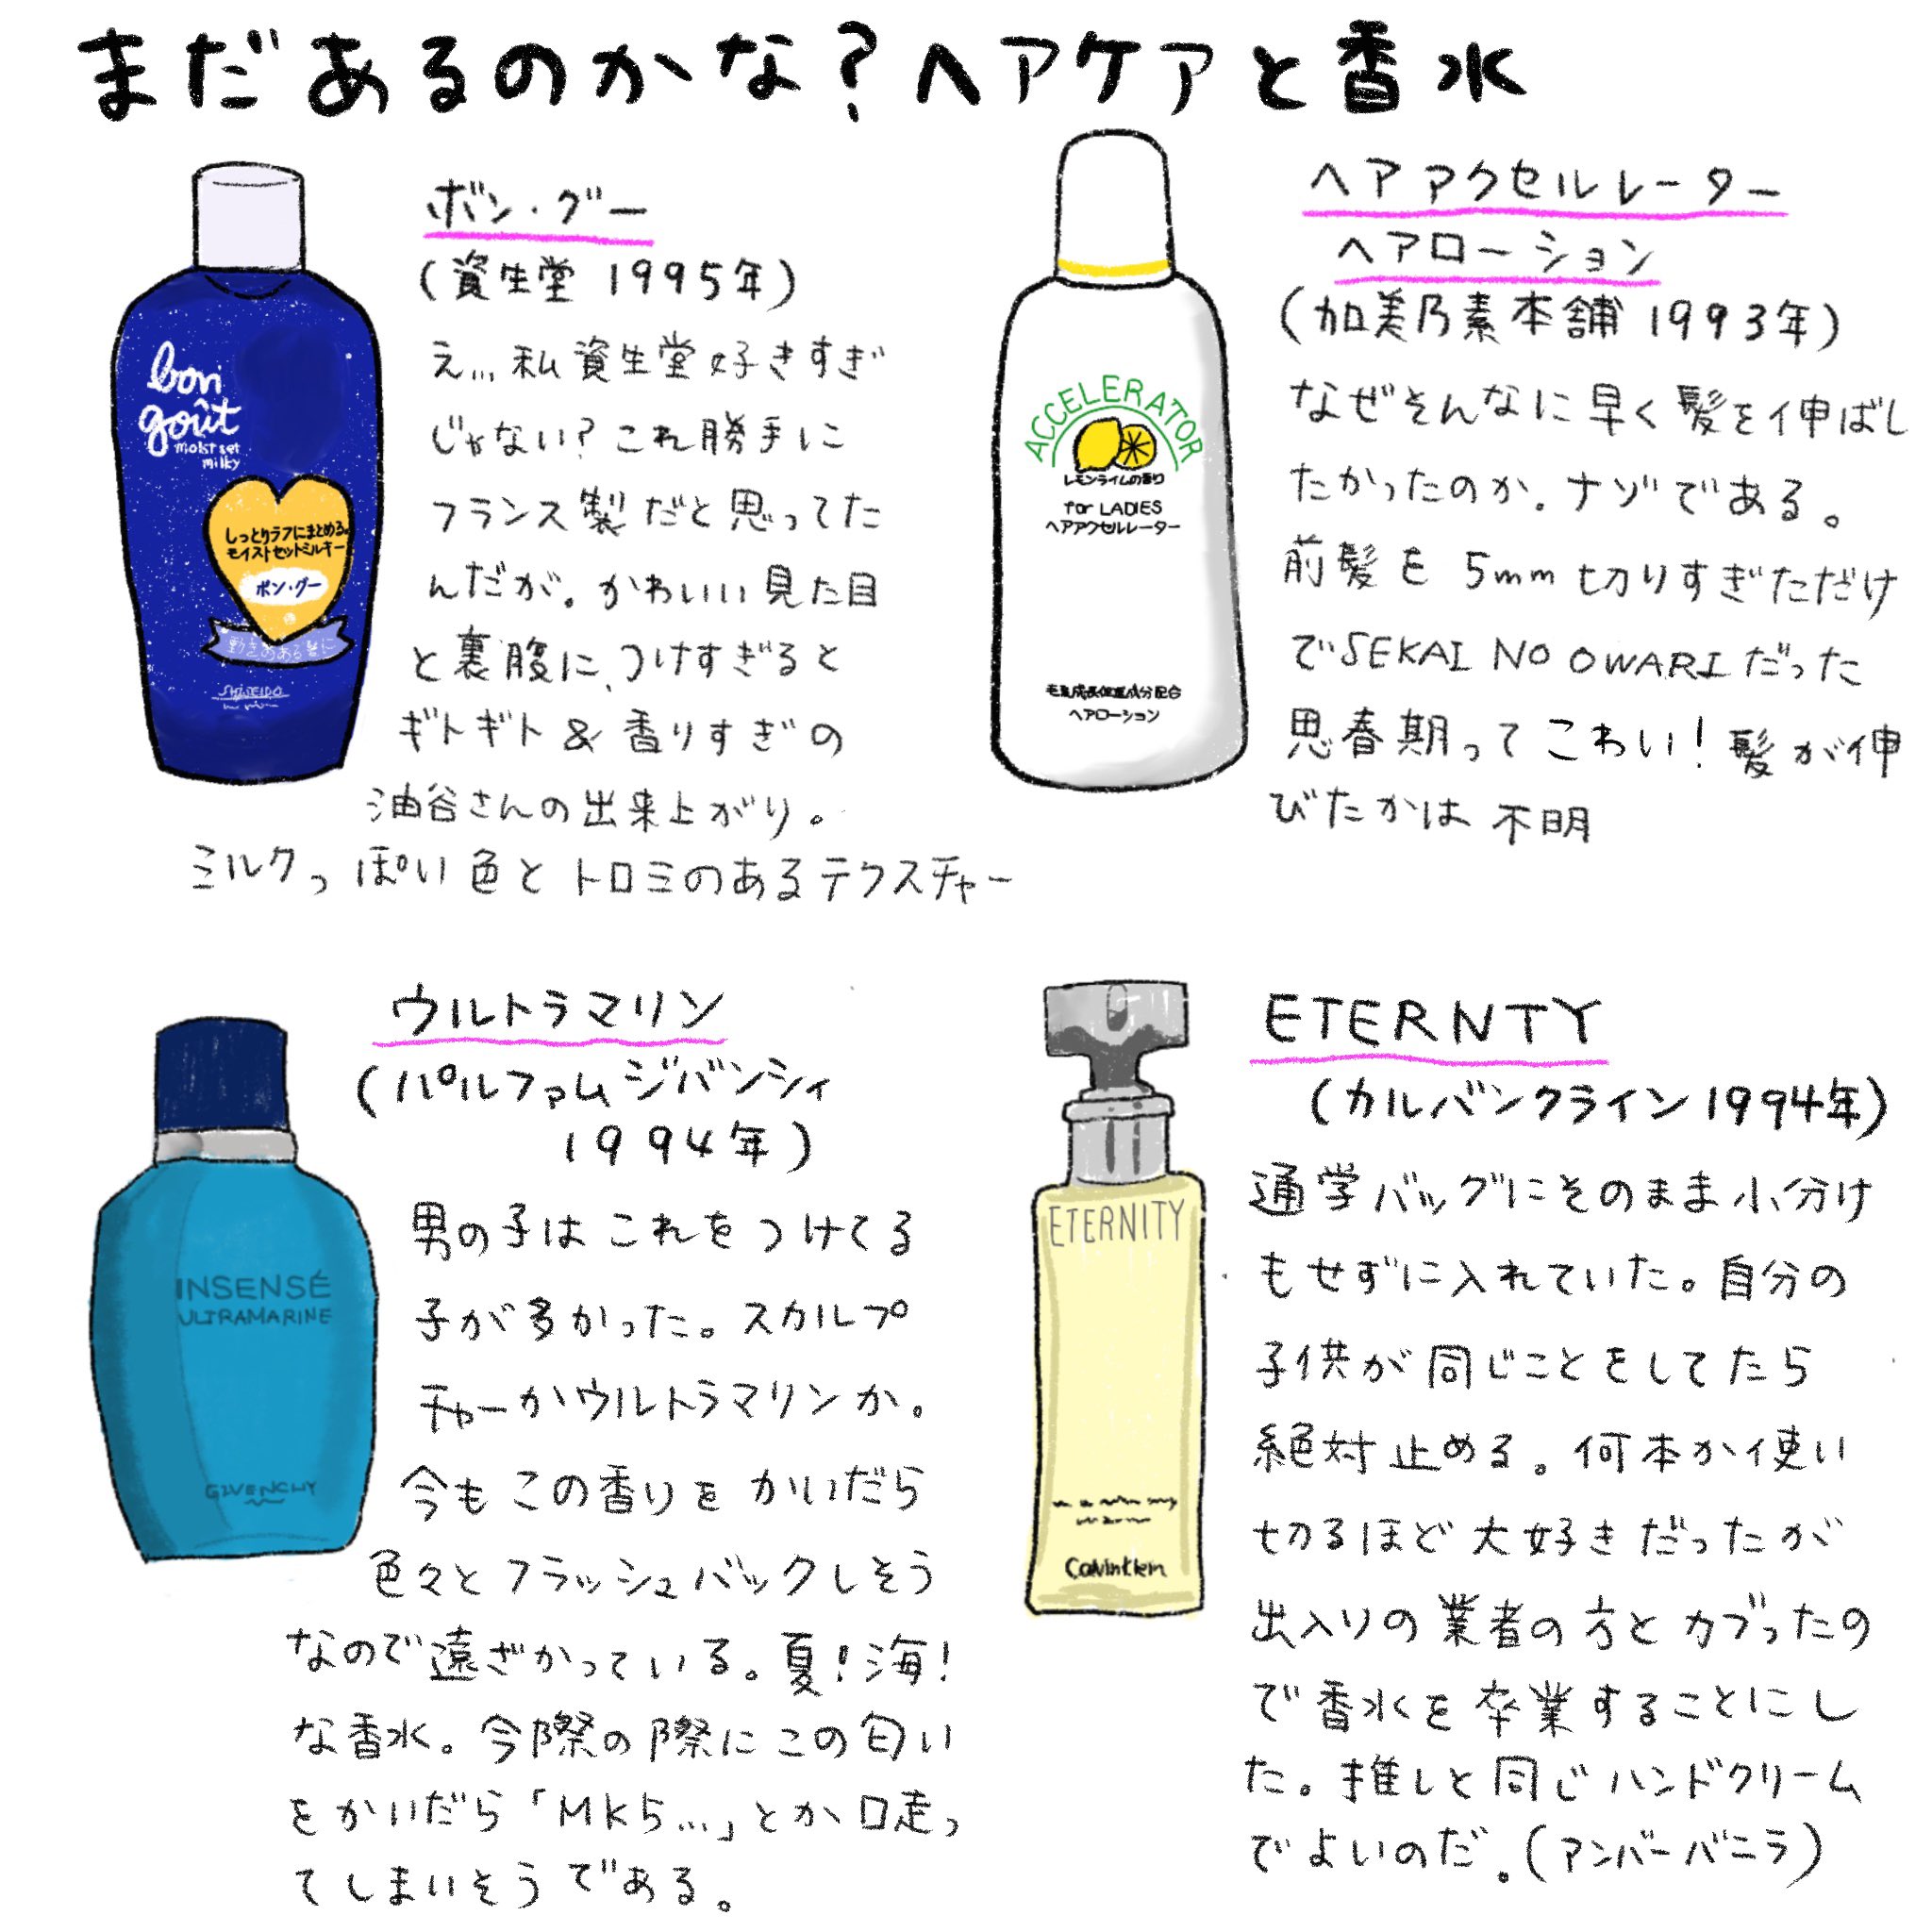 まだあるのかな?ヘアケアと香水
ボン・グー
(資生堂 1995年)
え… 私 資生堂 好きすぎ
じゃない? これ 勝手に
フランス製だと思ってた
んだが。かわいい見た目
と裏腹に、つけすぎると
ギトギト & 香りすぎの
油谷さんの出来上がり。
ミルクっぽい色とトロミのあるテクスチャー
bon
goût
moist set
milky
しっとりラフにまとめる。
モイストセットミルキー
ボン・グー
動きのある髪に
SHISEIDO
ヘアアクセルレーター
ヘアローション
(加美乃素本舗 1993年)
なぜそんなに早く髪を伸ばし
たかったのか。ナゾである。
前髪を 5mm 切りすぎただけ
でSEKAI NO OWARIだった
思春期ってこわい! 髪が伸
びたかは 不明
ACCELERATOR
レモンライムの香り
for LADIES
ヘアアクセルレーター
毛髪成長促進成分配合
ヘアローション
ウルトラマリン
(パルファム ジバンシィ
1994年)
男の子は これをつけてる
子が多かった。スカルプ
チャーかウルトラマリンか。
今もこの香りをかいだら
色々とフラッシュバックしそう
なので遠ざかっている。夏!海!
な香水。今際の際にこの匂い
をかいだら「MK5…」とか口走っ
てしまいそうである。
INSENSÉ
ULTRAMARINE
GIVENCHY
ETERNTY
(カルバンクライン1994年)
通学バッグにそのまま小分け
もせずに入れていた。自分の
子供が同じことをしてたら
絶対止める。何本か使い
切るほど大好きだったが
出入りの業者の方とカブったの
で香水を卒業することにし
た。推しと同じハンドクリーム
でよいのだ。(アンバーバニラ)
ETERNITY
Calvin Klein